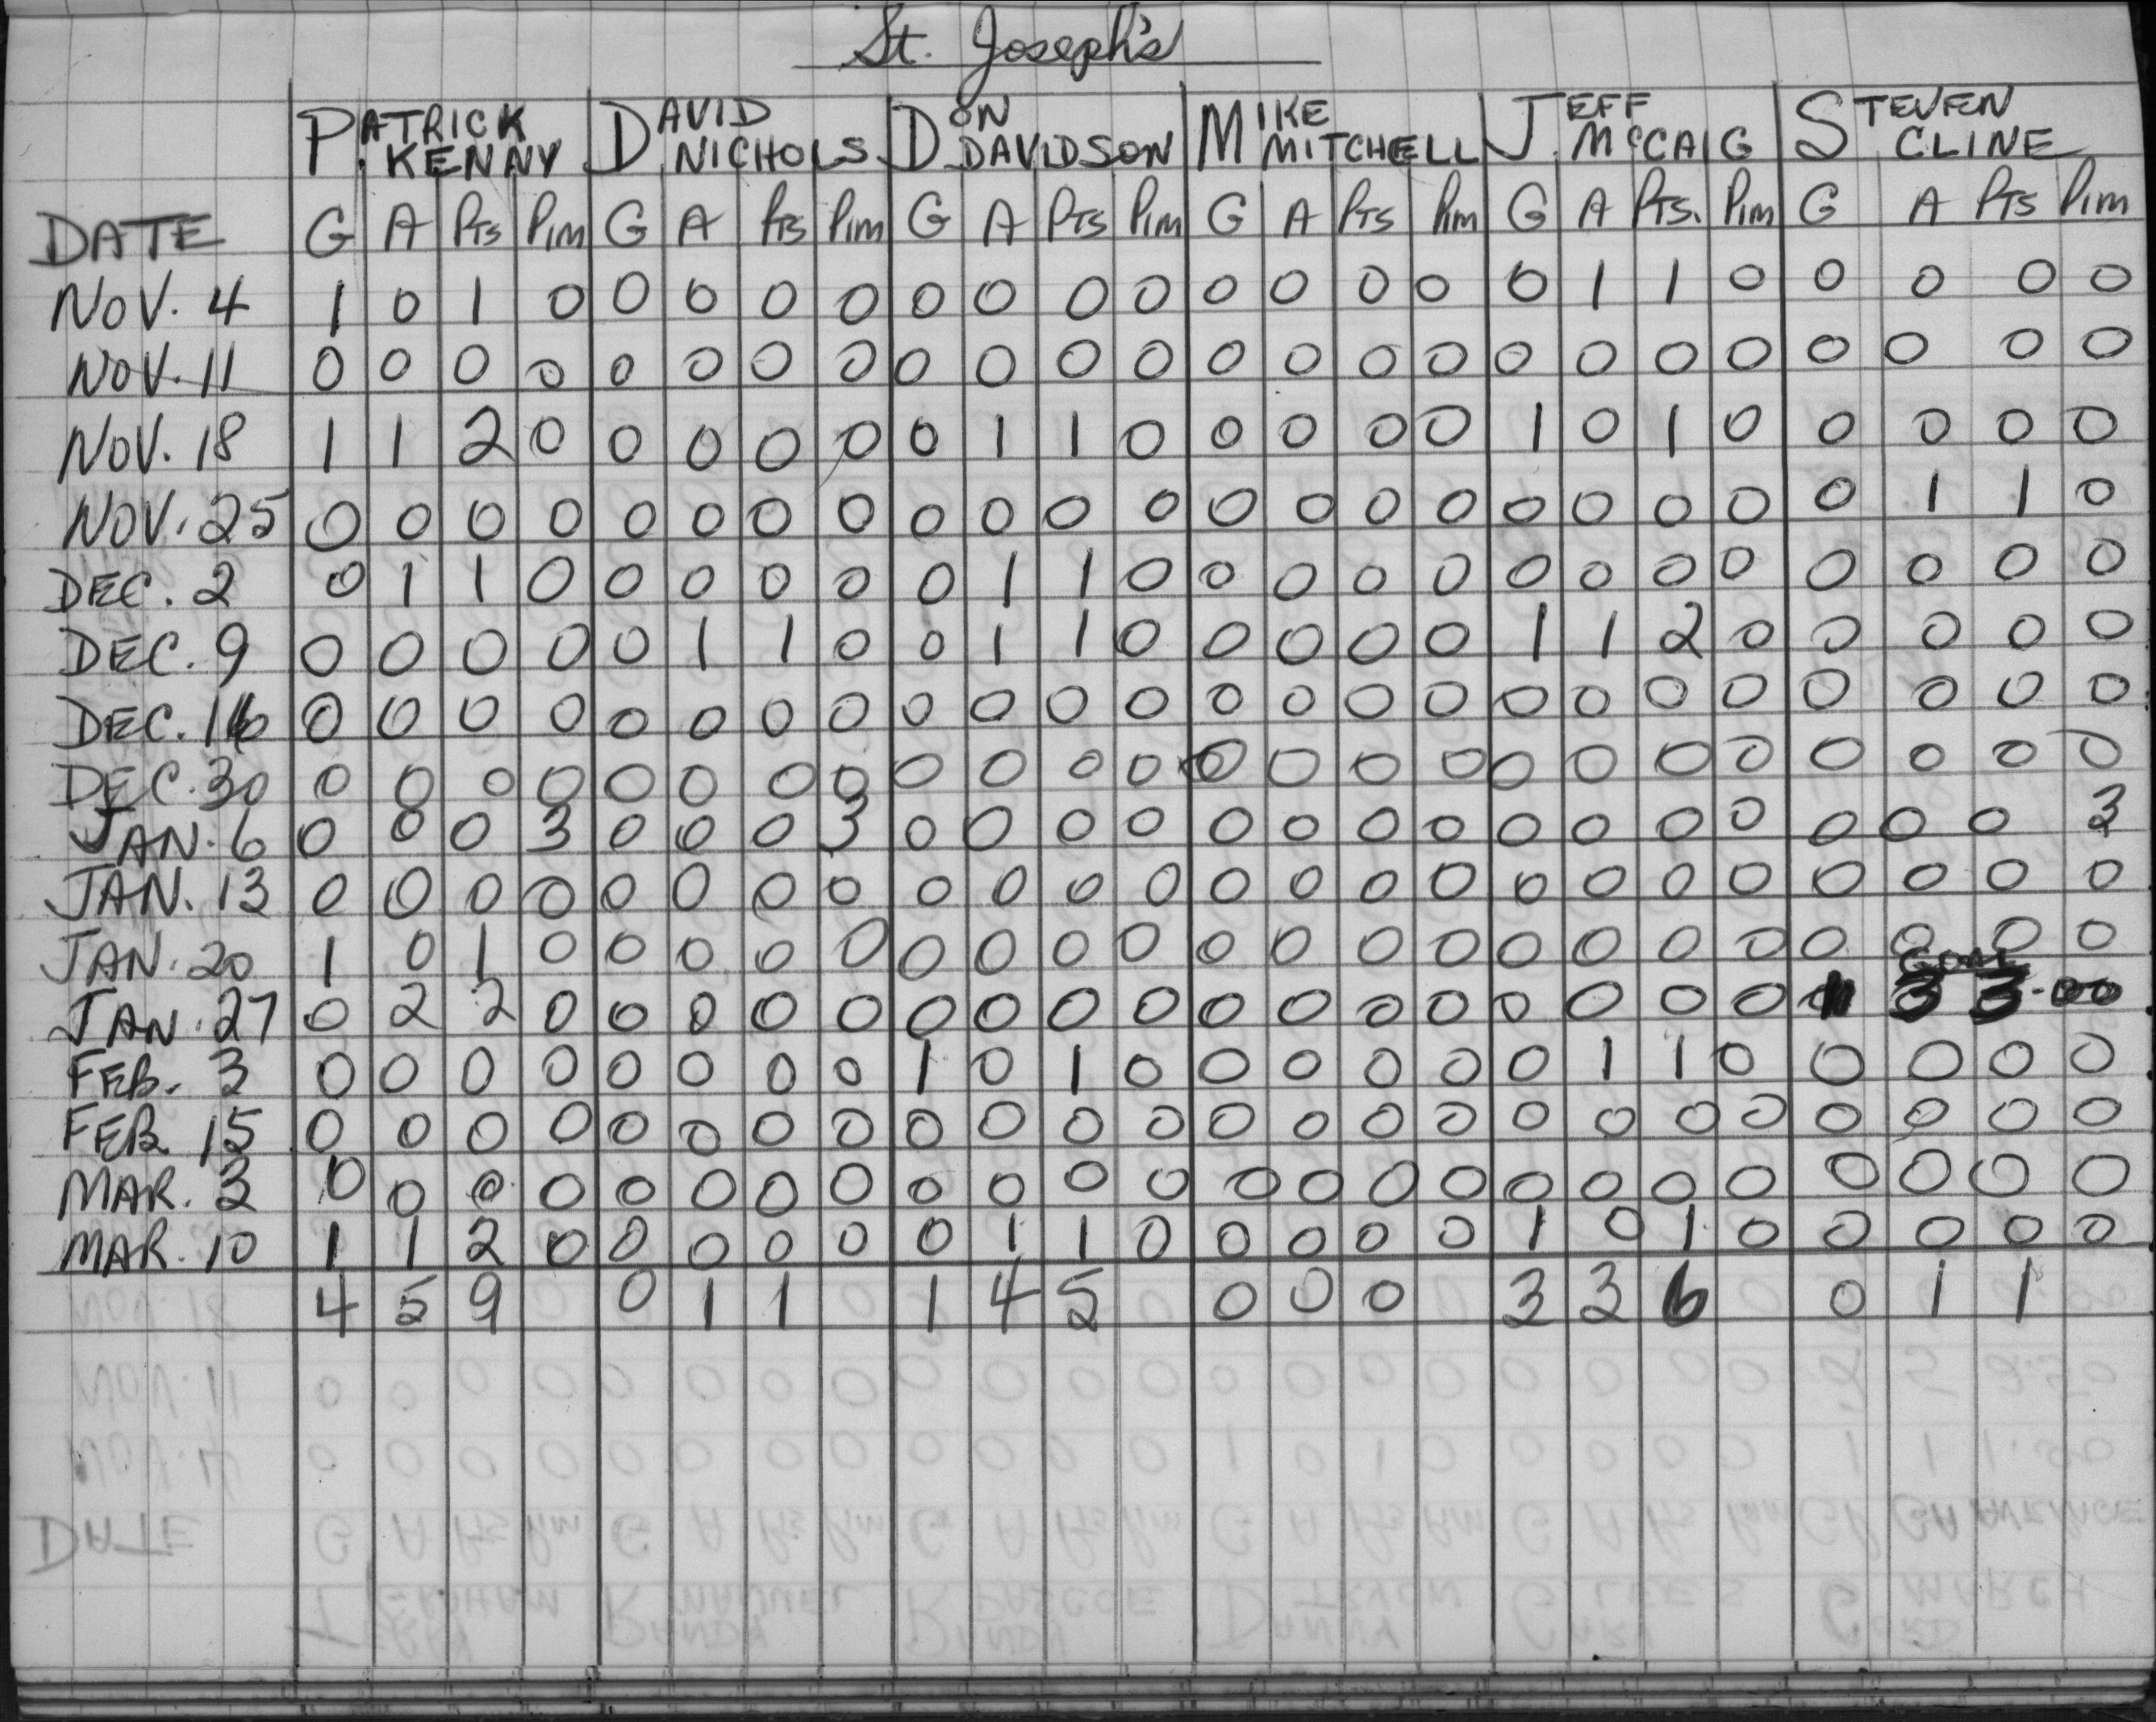 St. Joseph's
PATRICK KENNY DAVID NICHOLS DON DAVIDSON MIKE MITCHELL JEFF McCAIG STEVEN CLINE
DATE G A Pts Pim G A Pts Pim G A Pts Pim G A Pts Pim G A Pts. Pim G A Pts Pim
NOV. 4 1 0 1 0 0 0 0 0 0 0 0 0 0 0 0 0 0 1 1 0 0 0 0 0
NOV. 11 0 0 0 0 0 0 0 0 0 0 0 0 0 0 0 0 0 0 0 0 0 0 0 0
NOV. 18 1 1 2 0 0 0 0 0 0 1 1 0 0 0 0 0 1 0 1 0 0 0 0 0
NOV. 25 0 0 0 0 0 0 0 0 0 0 0 0 0 0 0 0 0 0 0 0 0 1 1 0
DEC. 2 0 1 1 0 0 0 0 0 0 1 1 0 0 0 0 0 0 0 0 0 0 0 0 0
DEC. 9 0 0 0 0 0 1 1 0 0 1 1 0 0 0 0 0 1 1 2 0 0 0 0 0
DEC. 16 0 0 0 0 0 0 0 0 0 0 0 0 0 0 0 0 0 0 0 0 0 0 0 0
DEC. 30 0 0 0 0 0 0 0 0 0 0 0 0 0 0 0 0 0 0 0 0 0 0 0 0
JAN. 6 0 0 0 3 0 0 0 3 0 0 0 0 0 0 0 0 0 0 0 0 0 0 0 3
JAN. 13 0 0 0 0 0 0 0 0 0 0 0 0 0 0 0 0 0 0 0 0 0 0 0 0
JAN. 20 1 0 1 0 0 0 0 0 0 0 0 0 0 0 0 0 0 0 0 0 0 0 0 0
GOAL
JAN. 27 0 2 2 0 0 0 0 0 0 0 0 0 0 0 0 0 0 0 0 0 1 3 3.00
FEB. 3 0 0 0 0 0 0 0 0 1 0 1 0 0 0 0 0 0 1 1 0 0 0 0 0
FEB. 15 0 0 0 0 0 0 0 0 0 0 0 0 0 0 0 0 0 0 0 0 0 0 0 0
MAR. 3 0 0 0 0 0 0 0 0 0 0 0 0 0 0 0 0 0 0 0 0 0 0 0 0
MAR. 10 1 1 2 0 0 0 0 0 0 1 1 0 0 0 0 0 1 0 1 0 0 0 0 0
4 5 9 0 1 1 1 4 5 0 0 0 3 3 6 0 1 1